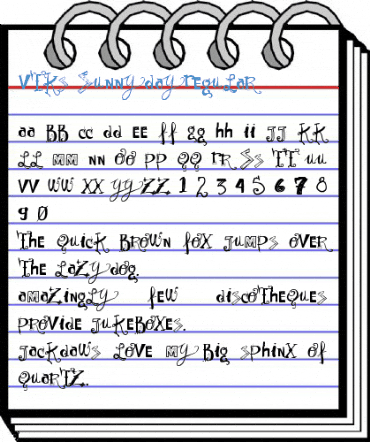 VTKS Sunny day regular
aa BB cc dd EE ff gg hh ii JJ KK
LL MM NN OO PP QQ rR Ss TT uu
VV WW XX yy ZZ 1 2 3 4 5 6 7 8
9 0
The Quick Brown fox jumps over
The Lazy dog.
amazingly few discotheques
provide jukeboxes.
jackdaws Love my Big sphinx of
Quartz.